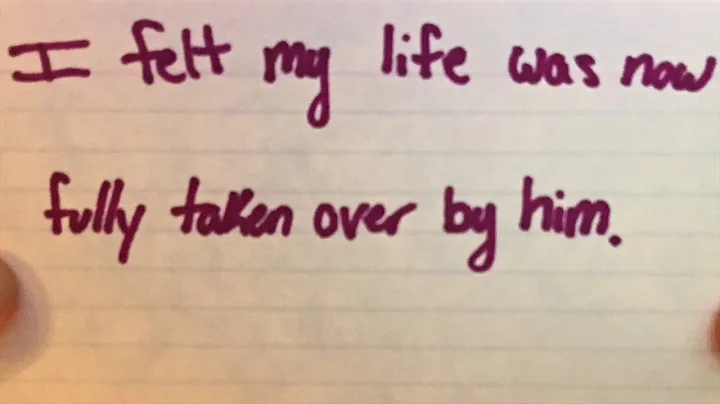 I felt my life was now
fully taken over by him.